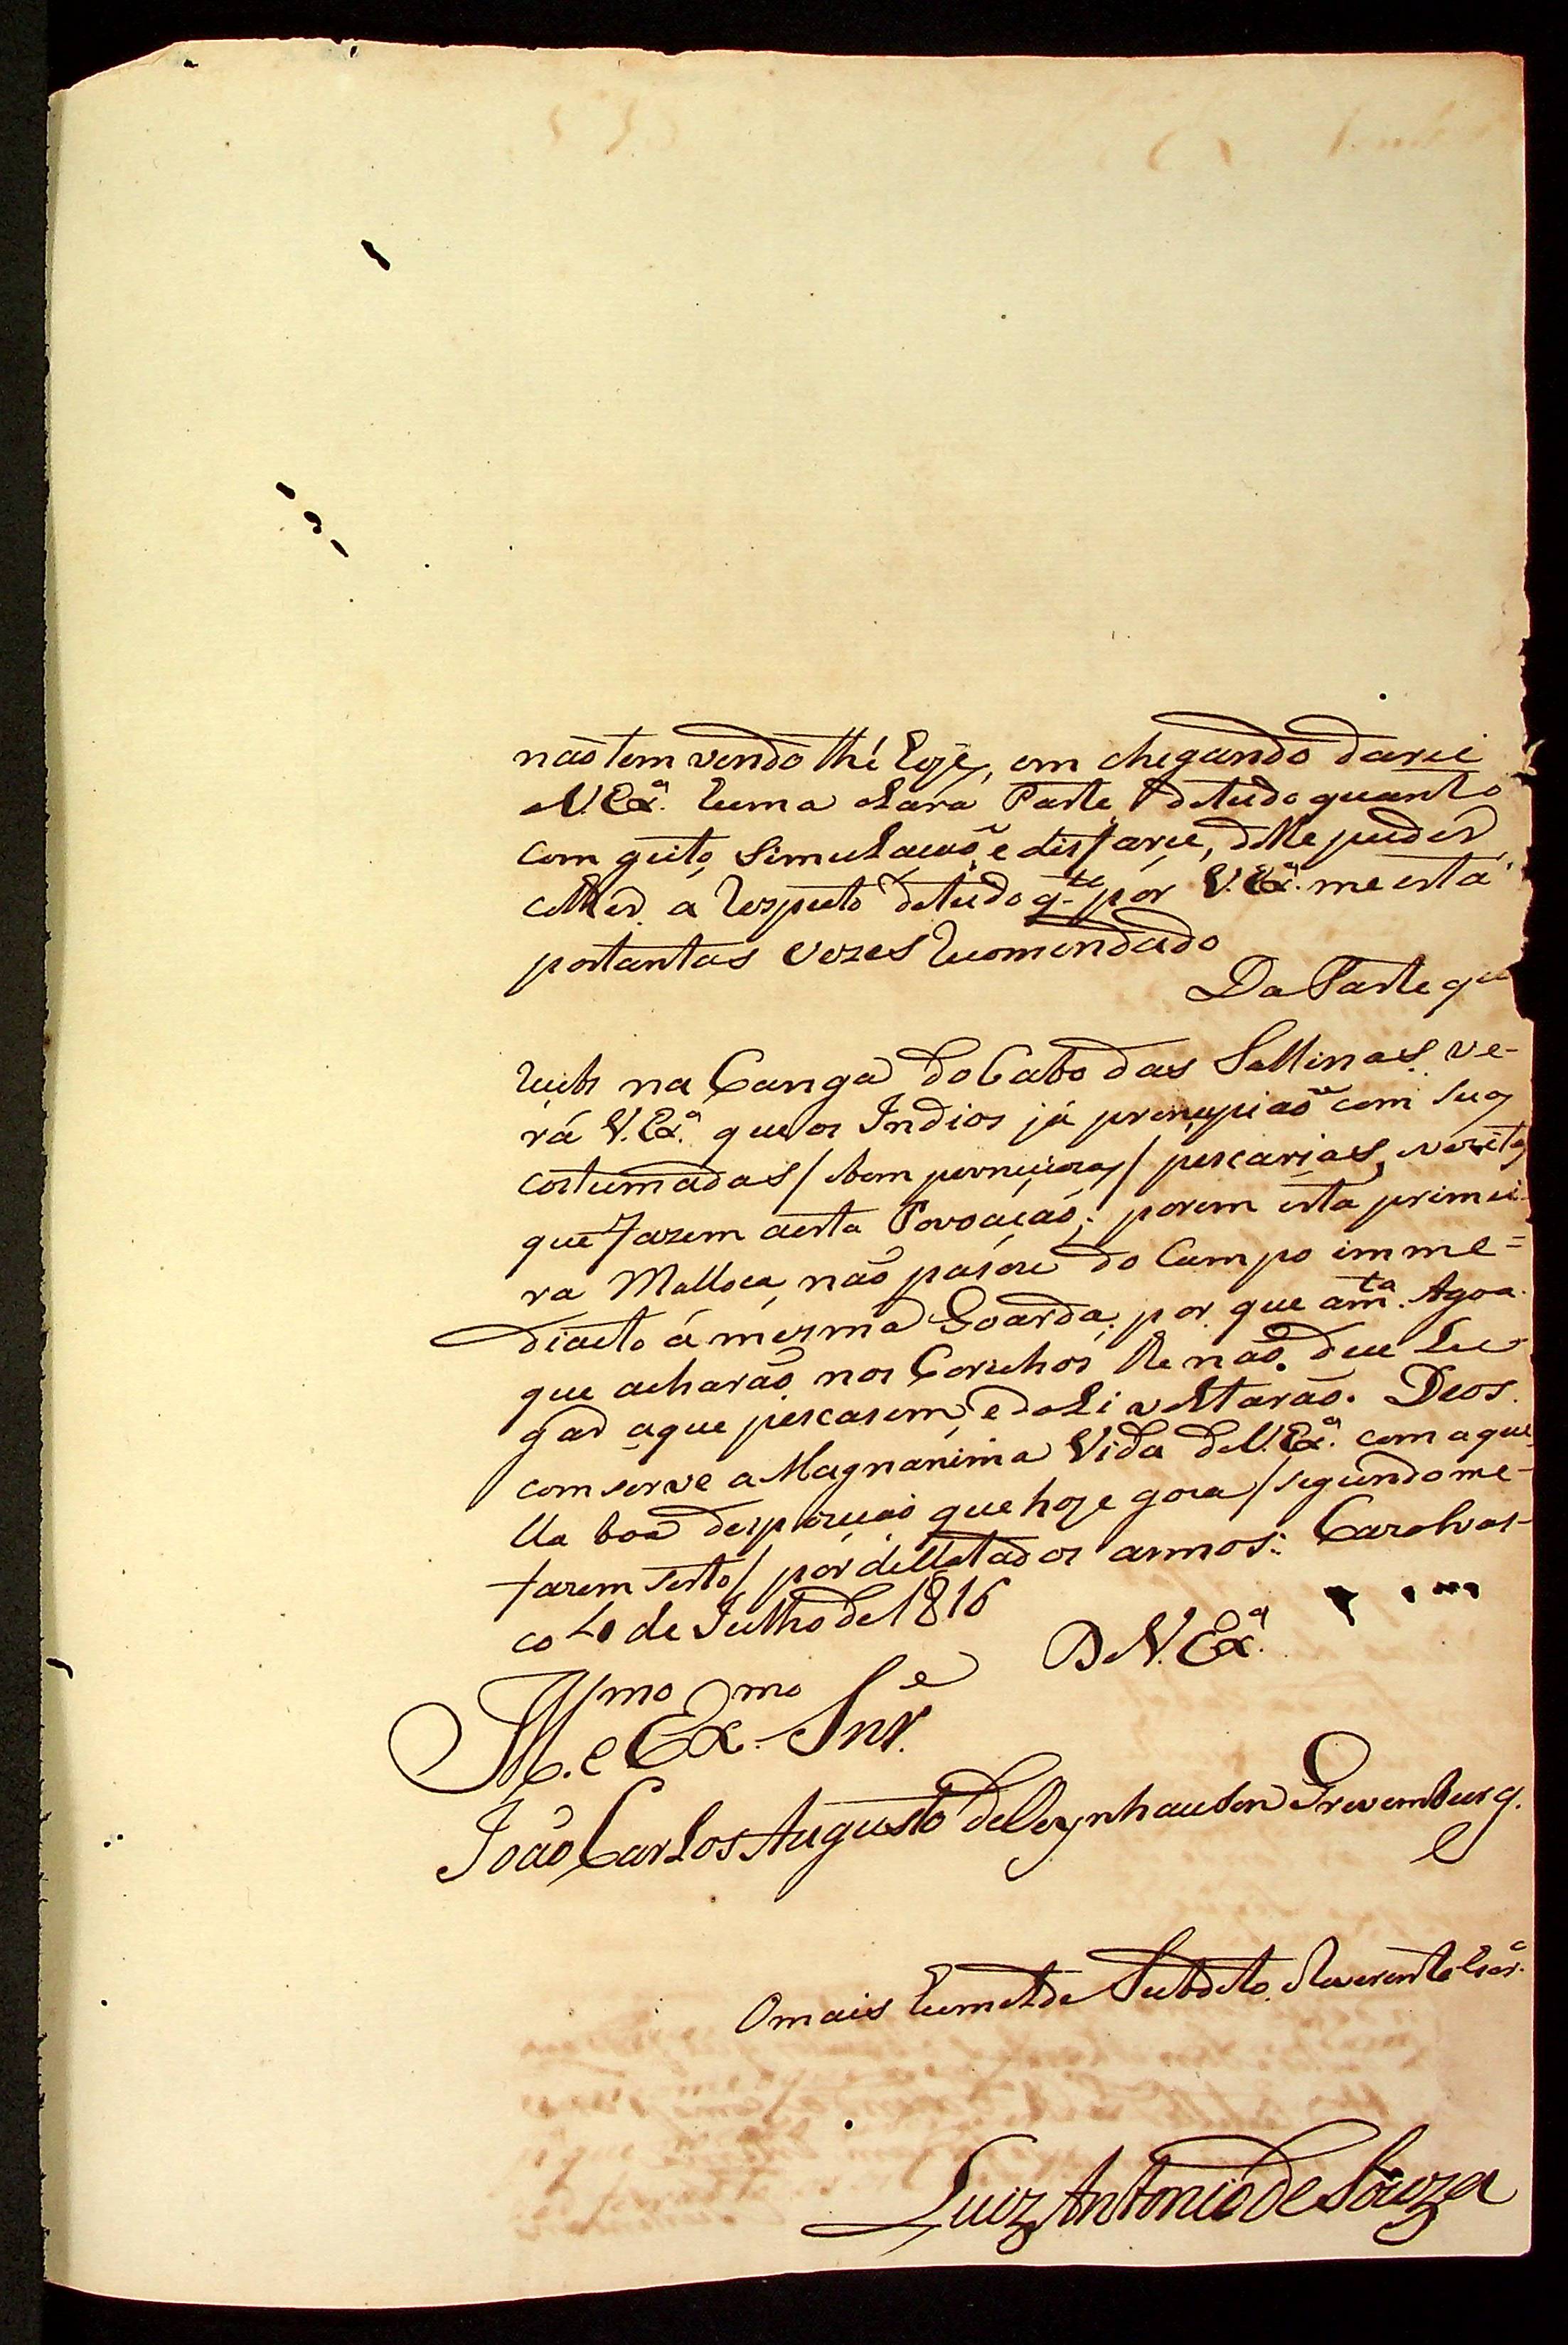 não tem vendo thé Oje, em chegando darei
a V. Exª. huma clara Parte de tudo quanto
com geito, simulação, e disfarce, delle poder
colher a respeito de tudo q.to por V. Exª. me está
por tantas vezes recomendado
Da Parte que
Recebi na Canga do Cabo das Sallinas ve-
rá V. Exª. que os Indios já principiaõ com suas
costumadas / bem perniciozas / pescarias, e vezitas
que fazem a esta Povoação; porem esta primei-
ra Malloca, não pasou do Campo imme=
diacto á mesma Goarda, por que a m.ta Agoa
que acharão nos Corichos lhe não deu Lu-
gar a que pescasem, e daLi voltarão. Deos
comserve a Magnanima Vida de V. Exª. com aque-
lla boa despozição que hoje goza / segundo me
fazem serto / por dillatados annos: Casalvas-
co 10 de Julho de 1816
De V. Exª.
Ill.mo e Ex.mo Snr.e
João Carlos Augusto de Oeynhausen Grevemburg.
O mais humelde Subdito, e Reverente
Luiz Antonio de Souza